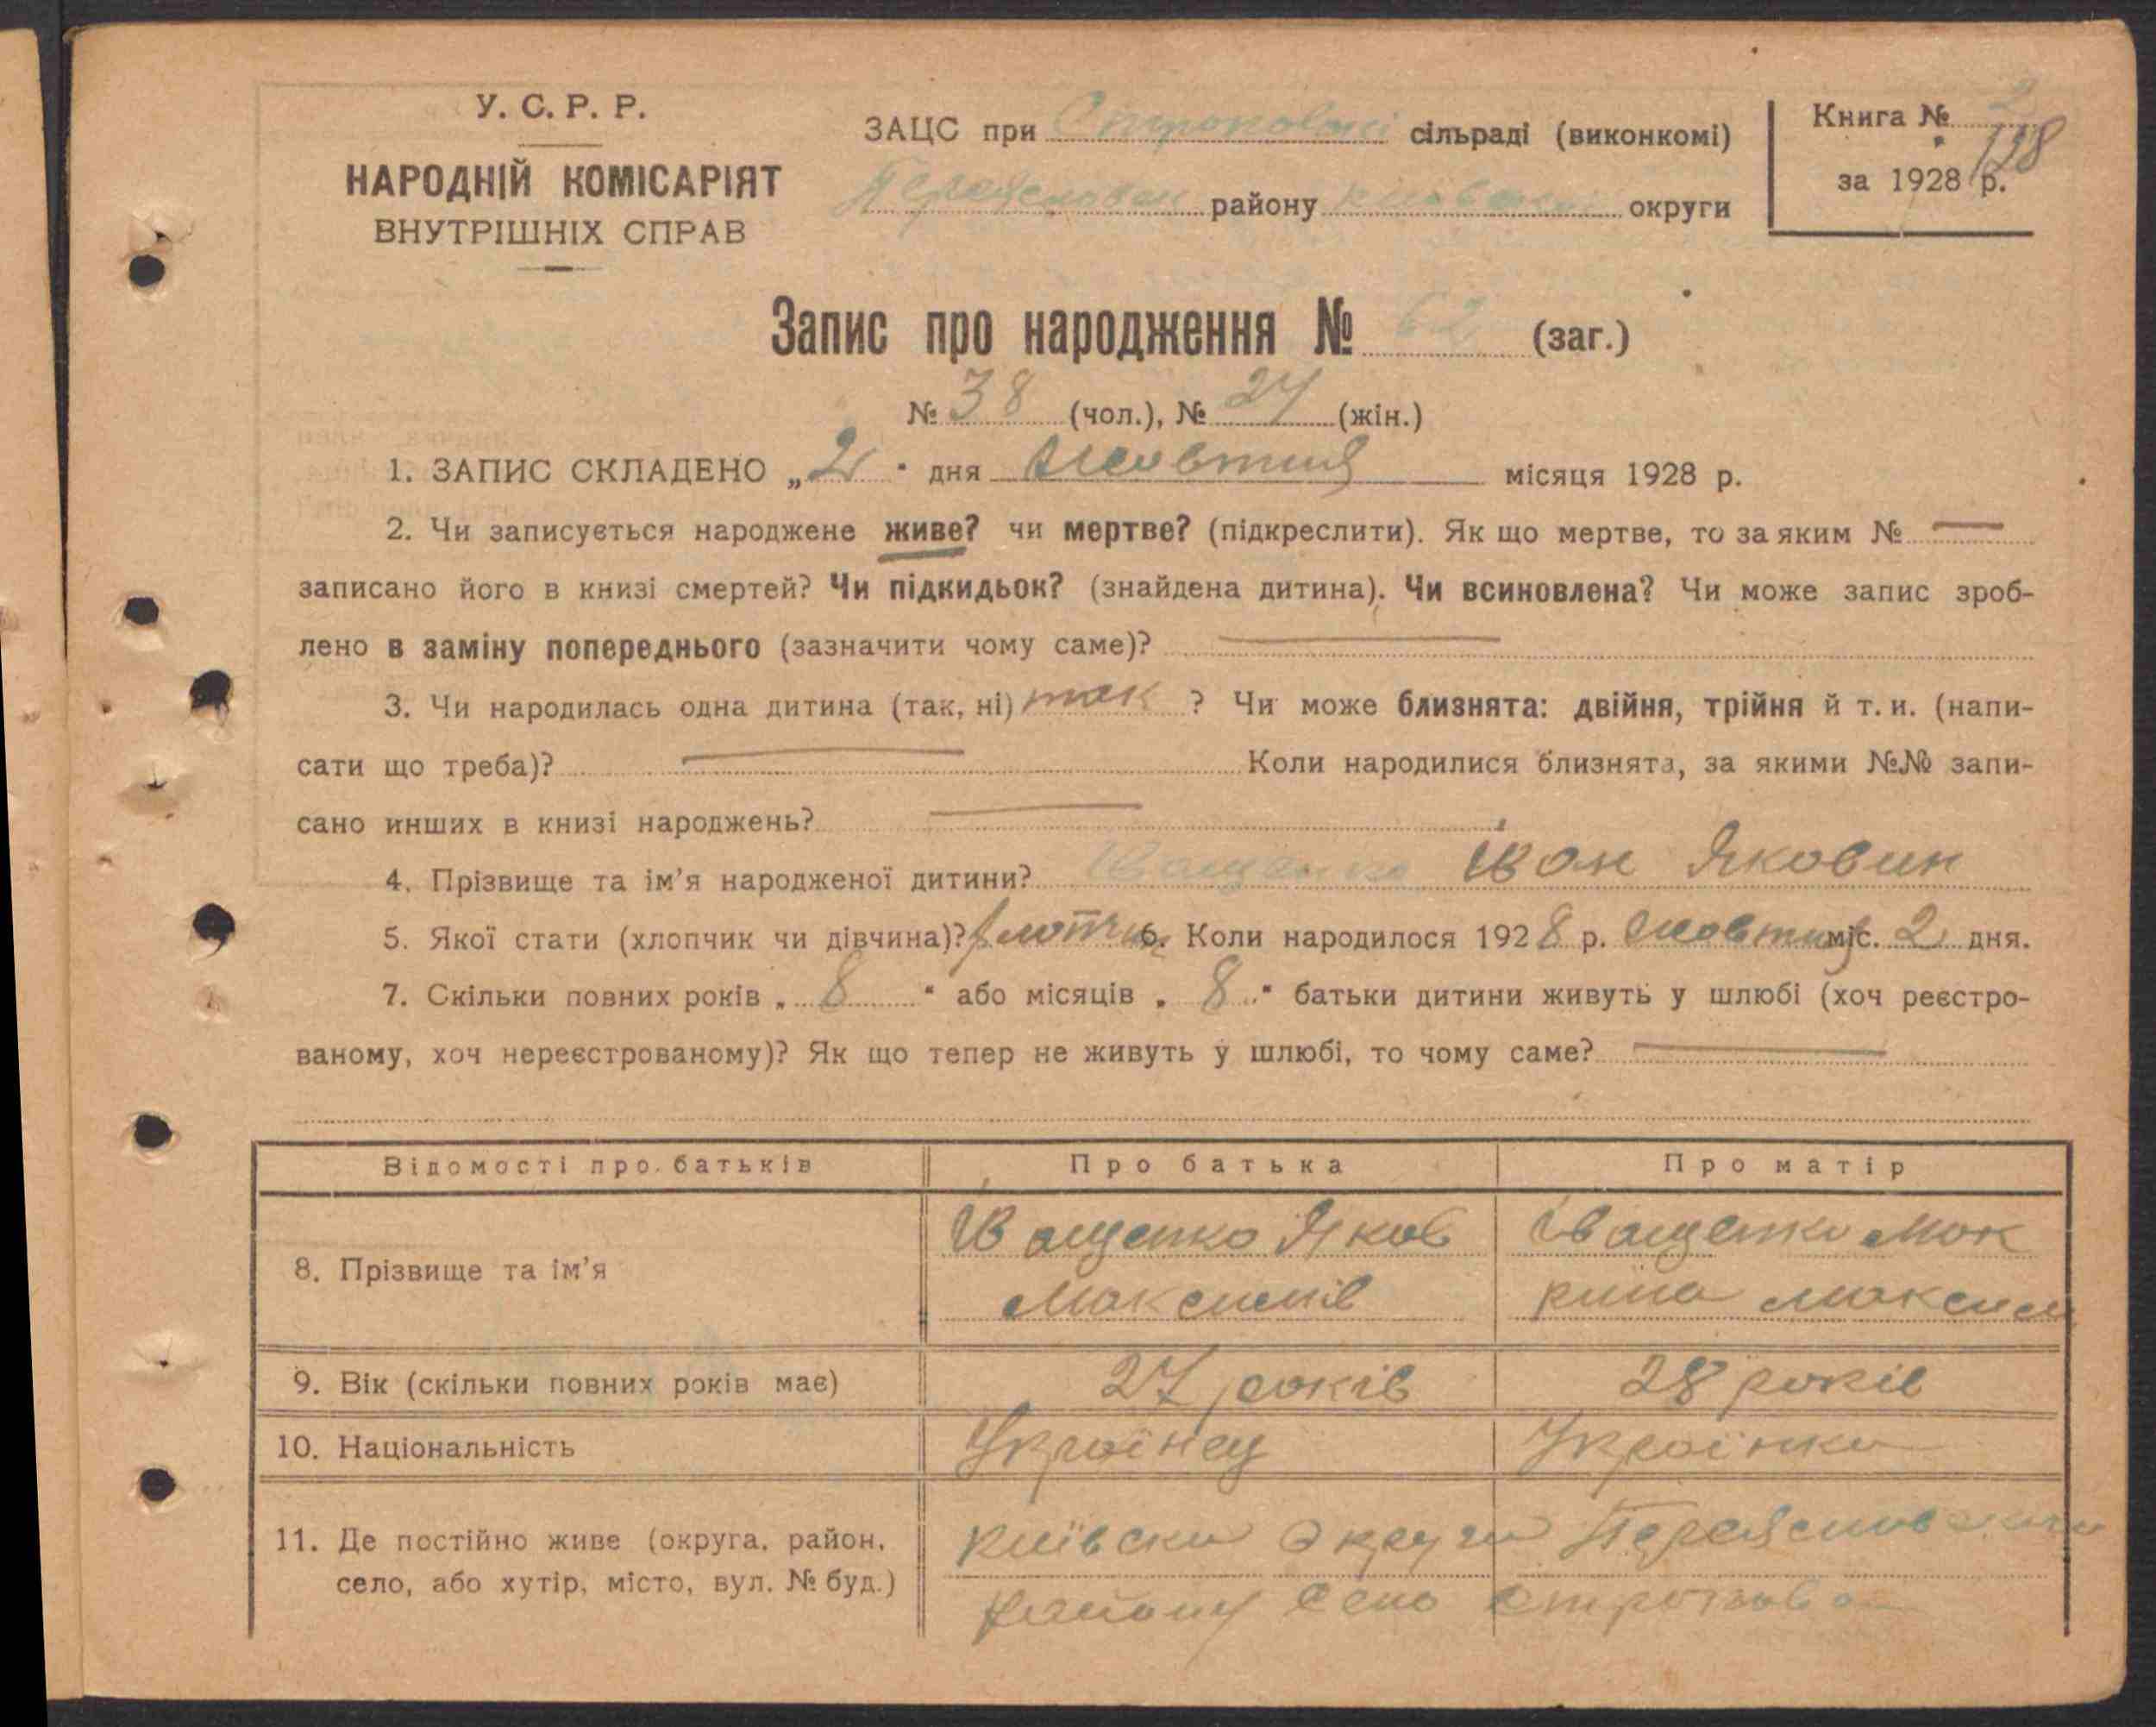 У. С. Р. Р.
НАРОДНІЙ КОМІСАРІЯТ
ВНУТРІШНІХ СПРАВ
ЗАЦС при Строковські сільраді (виконкомі)
району округи
Книга № 2
за 1928 р.
128
Запис про народження № 62 (заг.)
№ 38 (чол.), № 24 (жін.)
1. ЗАПИС СКЛАДЕНО „2" дня Жовтня місяця 1928 р.
2. Чи записується народжене живе? чи мертве? (підкреслити). Як що мертве, то за яким № —
записано його в книзі смертей? Чи підкидьок? (знайдена дитина). Чи всиновлена? Чи може запис зроб-
лено в заміну попереднього (зазначити чому саме)? —
3. Чи народилась одна дитина (так, ні) так ? Чи може близнята: двійня, трійня й т. и. (напи-
сати що треба)? — Коли народилися близнята, за якими №№ запи-
сано инших в книзі народжень? —
4. Прізвище та ім'я народженої дитини? Іващенко Іван Яковин
5. Якої стати (хлопчик чи дівчина)? 6. Коли народилося 1928 р. Жовтня міс. 2 дня.
7. Скільки повних років „8" або місяців „8" батьки дитини живуть у шлюбі (хоч реєстро-
ваному, хоч нереєстрованому)? Як що тепер не живуть у шлюбі, то чому саме? —
Відомості про батьків Про батька Про матір
8. Прізвище та ім'я
Іващенко Яков Іващенко Мок
Максимів рина Максим
9. Вік (скільки повних років має) 27 років 28 років
10. Національність Українец Українка
11. Де постійно живе (округа, район, село, або хутір, місто, вул. № буд.)
Київски Округи
району Село Строкова